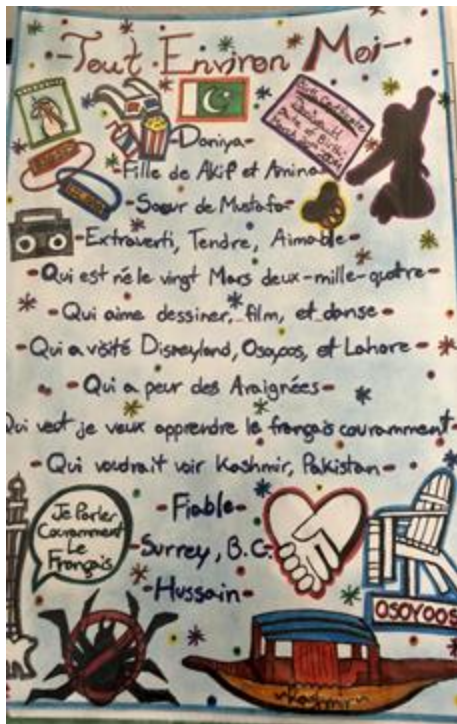 -Tout Environ Moi-
-Doniya-
-Fille de Akif et Amina-
-Soeur de Mustafa-
-Extraverti, Tendre, Aimable-
-Qui est né le vingt Mars deux-mille-quatre-
-Qui aime dessiner, film, et danse-
-Qui a visité Disneyland, Osoyoos, et Lahore-
-Qui a peur des Araignées-
Qui veut je veux apprendre le français couramment-
-Qui voudrait voir Kashmir, Pakistan-
-Fiable-
-Surrey, B.C.-
-Hussain-
Je Parler
Couramment
Le
Français
OSOYOOS
Kashmir